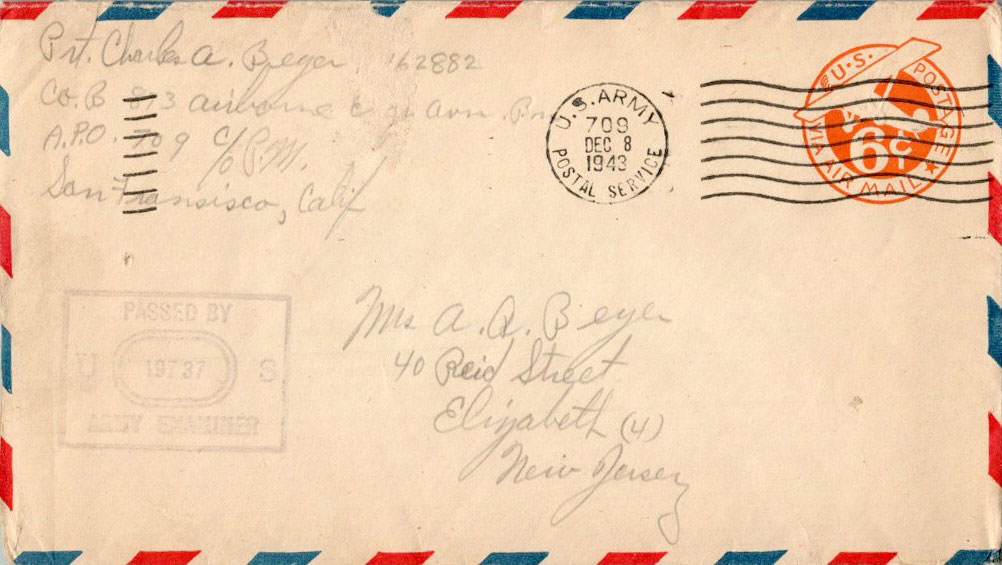 Pvt. Charles A. Beyer 162882
Co. B 813 Airborne Engr. Avn. Bn
A.P.O. 709 c/o P.M.
San Fransisco, Calif
U.S. ARMY
709
DEC 8
1943
POSTAL SERVICE
U.S. POSTAGE
6¢
VIA AIR MAIL
PASSED BY
U 19737 S
ARMY EXAMINER
Mrs A. R. Beyer
40 Reid Street
Elizabeth (4)
New Jersey